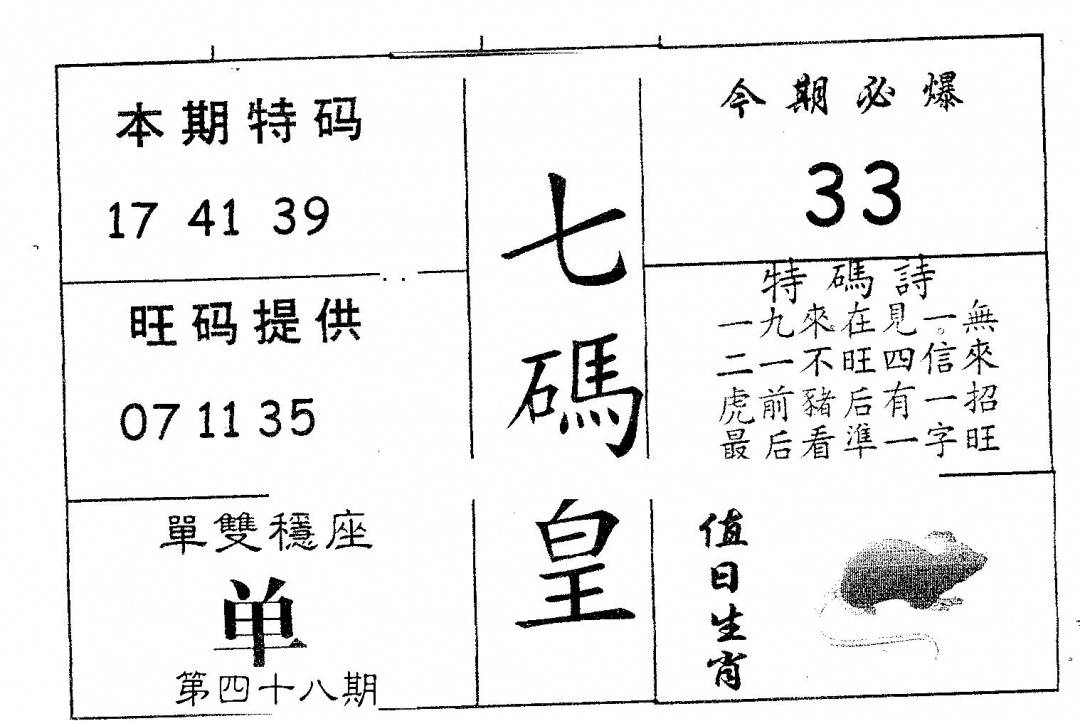 本期特码
17 41 39
旺码提供
07 11 35
單雙穩座
单
第四十八期
七碼皇
今期必爆
33
特碼詩
一九來在見一無
二一不旺四信來
虎前豬后有一招
最后看準一字旺
值日生肖